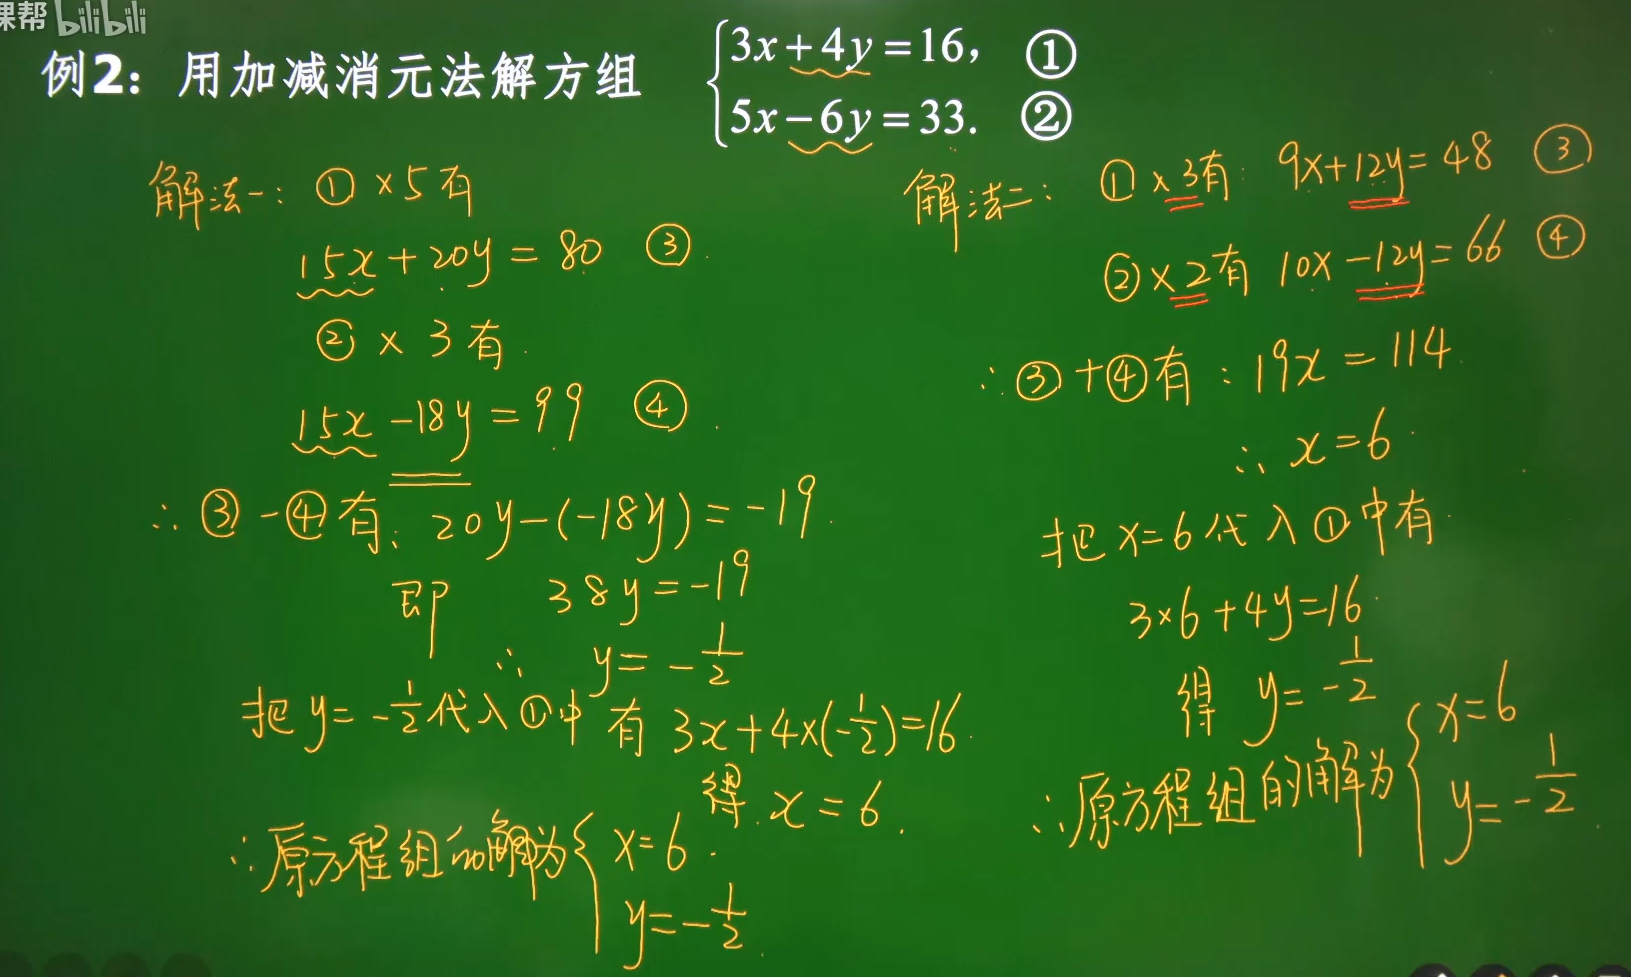 课帮 bilibili
例2：用加减消元法解方组
3x+4y=16， ①
5x-6y=33. ②
解法一：①×5有
15x+20y=80 ③
②×3有
15x-18y=99 ④
∴③-④有：20y-(-18y)=-19
即 38y=-19
∴ y=-1/2
把y=-1/2代入①中有 3x+4×(-1/2)=16
得 x=6.
∴原方程组的解为{x=6
y=-1/2
解法二：①×3有：9x+12y=48 ③
②×2有 10x-12y=66 ④
∴③+④有：19x=114
∴ x=6
把x=6代入①中有
3×6+4y=16
得 y=-1/2
∴原方程组的解为{x=6
y=-1/2